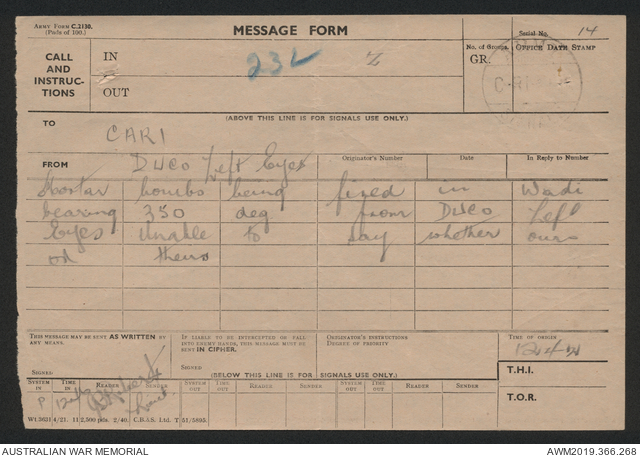 ARMY FORM C.2130.
(Pads of 100.)
MESSAGE FORM
Serial No. 14
CALL
AND
INSTRUC-
TIONS
IN
OUT
232
Z
No. of Groups.
GR.
OFFICE DATE STAMP
(ABOVE THIS LINE IS FOR SIGNALS USE ONLY.)
TO
CARI
FROM
Duco Left Eyes
Originator's Number
Date
In Reply to Number
Mortar bombs being fired in Wadi
bearing 350 deg from Duco Left
Eyes unable to say whether ours
or theirs
THIS MESSAGE MAY BE SENT AS WRITTEN BY
ANY MEANS.
SIGNED:
IF LIABLE TO BE INTERCEPTED OR FALL
INTO ENEMY HANDS, THIS MESSAGE MUST BE
SENT IN CIPHER.
SIGNED
ORIGINATOR'S INSTRUCTIONS
DEGREE OF PRIORITY
TIME OF ORIGIN
T.H.I.
T.O.R.
(BELOW THIS LINE IS FOR SIGNALS USE ONLY.)
SYSTEM IN
TIME IN
READER
SENDER
SYSTEM OUT
TIME OUT
READER
SENDER
SYSTEM OUT
TIME OUT
READER
SENDER
P
AUSTRALIAN WAR MEMORIAL
AWM2019.366.268